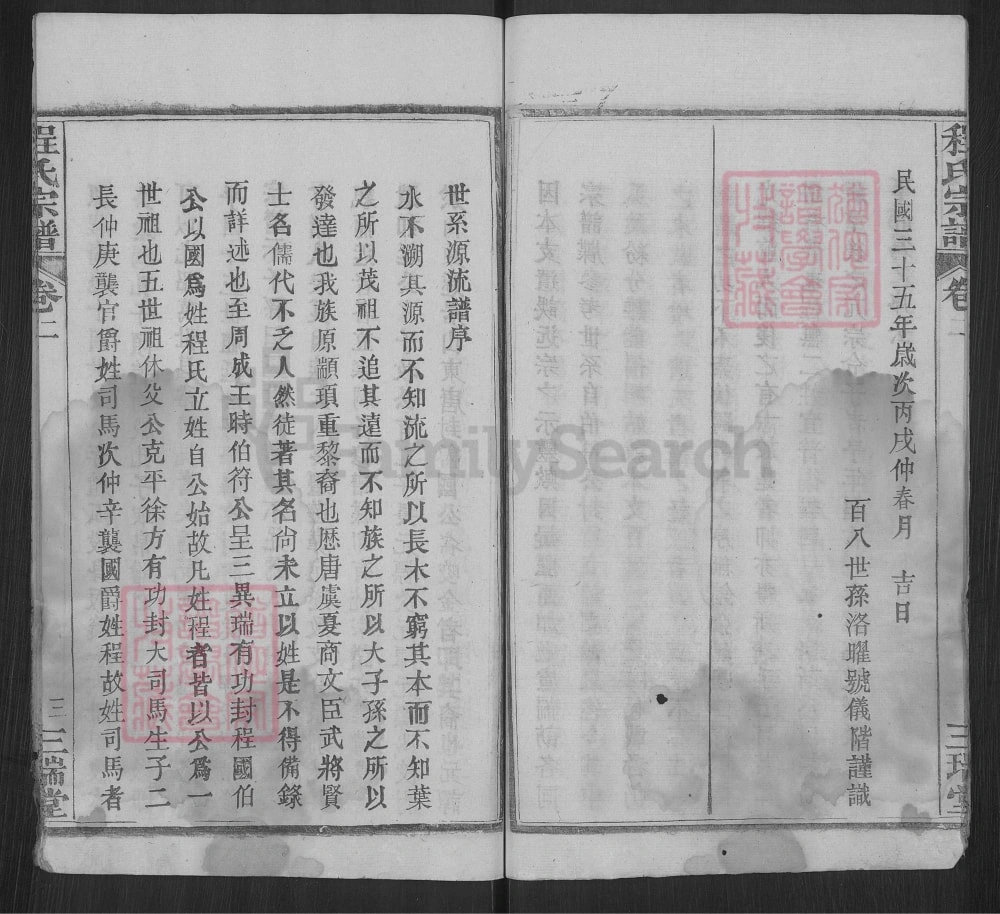 程氏宗譜
卷二
三瑞堂
民國三十五年歲次丙戌仲春月　吉日
百八世孫洛曜號儀階謹識
世系源流譜序
水不溯其源而不知流之所以長木不窮其本而不知葉
之所以茂祖不追其遠而不知族之所以大子孫之所以
發達也我族原顓頊重黎裔也歷唐虞夏商文臣武將賢
士名儒代不乏人然徒著其名尙未立以姓是不得備錄
而詳述也至周成王時伯符公呈三異瑞有功封程國伯
公以國爲姓程氏立姓自公始故凡姓程者皆以公爲一
世祖也五世祖休父公克平徐方有功封大司馬生子二
長仲庚襲官爵姓司馬次仲辛襲國爵姓程故姓司馬者
程氏宗譜
卷二
三
三瑞堂
FamilySearch